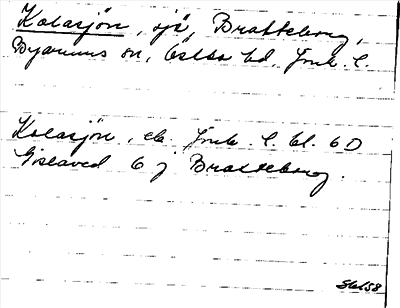 Kolasjön, sjö, Bratteborg,
Byarums sn, Östbo hd, Jönk. l.
Kolasjön, ek. Jönk. l. bl. 6 D
Gislaved 6 j Bratteborg.